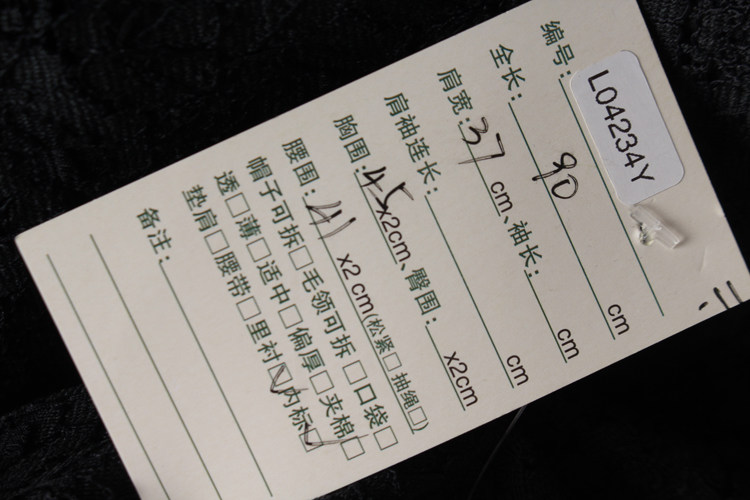 编号: L04234Y
全长: 90 cm
肩宽: 37 cm、袖长: cm
肩袖连长: cm
胸围: 45 x2cm、臀围: x2cm
腰围: 41 x2 cm(松紧□ 抽绳□)
帽子可拆□ 毛领可拆□ 口袋□
透□ 薄□ 适中□ 偏厚□ 夹棉□
垫肩□ 腰带□ 里衬☑ 内标☑
备注: